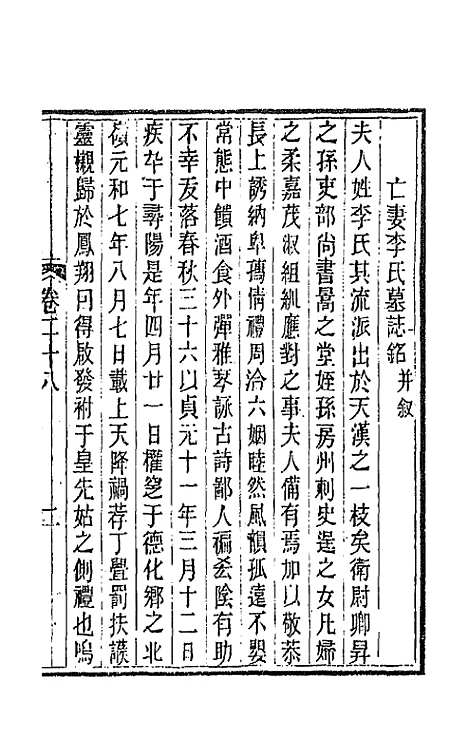 亡妻李氏墓誌銘并叙
夫人姓李氏其流派出於天漢之一枝矣衛尉卿昇
之孫吏部尚書暠之堂姪孫房州刺史遈之女凡婦
之柔嘉茂淑組紃應對之事夫人備有焉加以敬恭
長上誘納卑孺情禮周洽六姻睦然風韻孤遠不嬰
常態中饋酒食外彈雅琴詠古詩鄙人褊悫陰有助
不幸夭落春秋三十六以貞元十一年三月十二日
疾卒于尋陽是年四月廿一日權窆于德化鄉之北
嶺元和七年八月七日載上天降禍荐丁舋罰扶護
靈櫬歸於鳳翔日得啟發祔于皇先姑之側禮也嗚
卷二十八